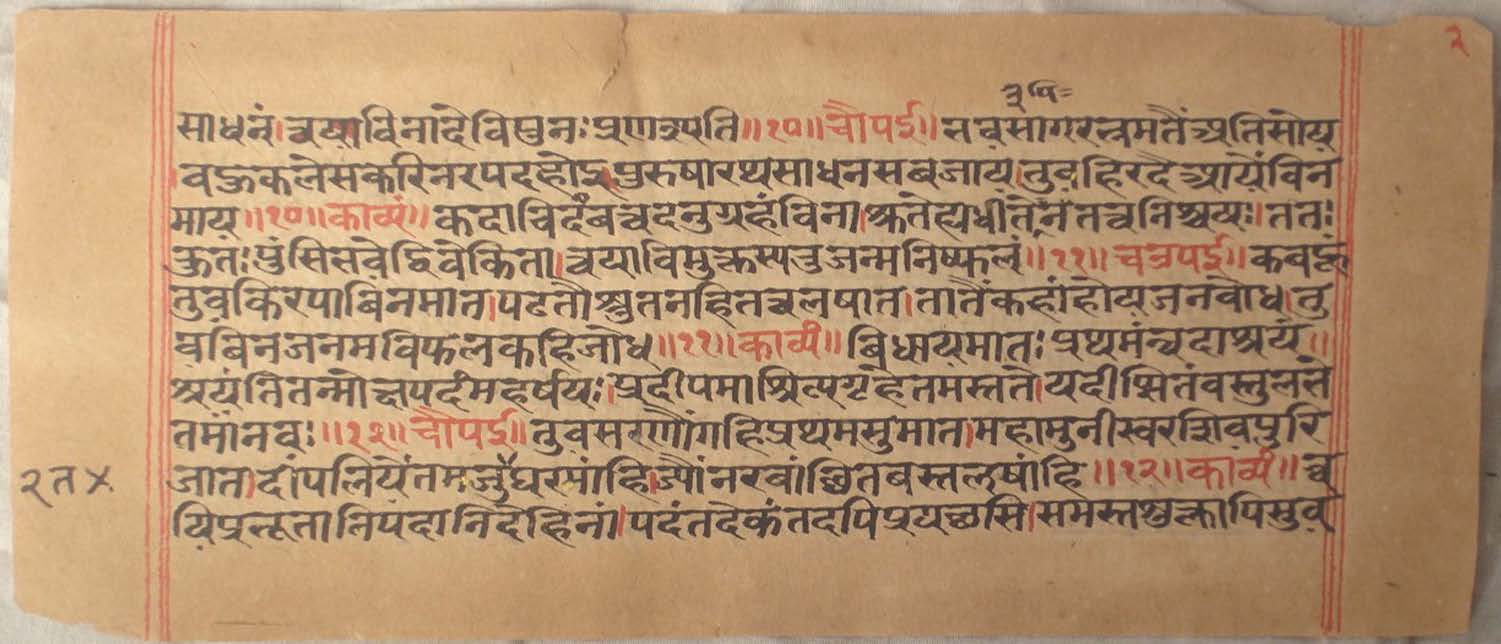 ३
त्रुषि=
साधनं। त्वया विना देवि पुनः प्रणश्यति॥१०॥ चौपई॥ नवसागरन्नमतैं अतिसोय
वऊकलेसकरिनरपदहोइ। पुरुषारथसाधनसबजाय। तुवहिरदैआयैंविन
माय॥१०॥ काव्यं॥ कदाचिदंबत्वदनुग्रहंविना। श्रुतेह्यधीतेनंतत्वनिश्चयः। ततः
कुतः पुंसिनवेद्विवेकिता। त्वयाविमुक्तस्यतुजन्मनिष्फलं॥११॥ चउपई॥ कबहूं
तुवकिरपाबिनमात। पढतौश्रुतनहितत्त्वलषात। तातैंकहांहोयजनबोध। तु
वबिनजनमविफलकहिजोध॥११॥ काव्यं॥ बिधायमातः प्रथमंत्वदाश्रयं॥
श्रयंतितन्मोक्षपदंमहर्षयः। प्रदीपमाश्रित्यगृहेतमस्तते। यदीप्सितंवस्तुलभते
तमांनवः॥१२॥ चौपई॥ तुवसरणौंगहिप्रथमसुमात। महामुनीस्वरशिवपुरि
जात। दीपलियैंतमजुैघरमांहि। ज्यौंनरबांछितबस्तलषांहि॥१२॥ काव्यं॥ त्व
२त ×
यिप्रभूतानिपदानिदेहिनां। पदंतदेकंतदपिप्रयच्छसि। समस्तशुक्लापिसुव